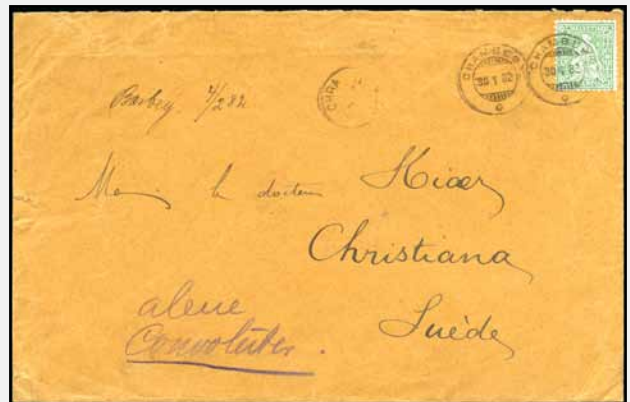 CHAMBESY
30 I 82
CHAMBESY
30 I 82
Barbey 4/2 82.
CHRI
le docteur Kiær
Christiana
Suède
alene
Convoluter.